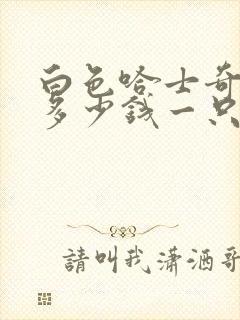 白色哈士奇
多少钱一只
請叫我瀟洒哥